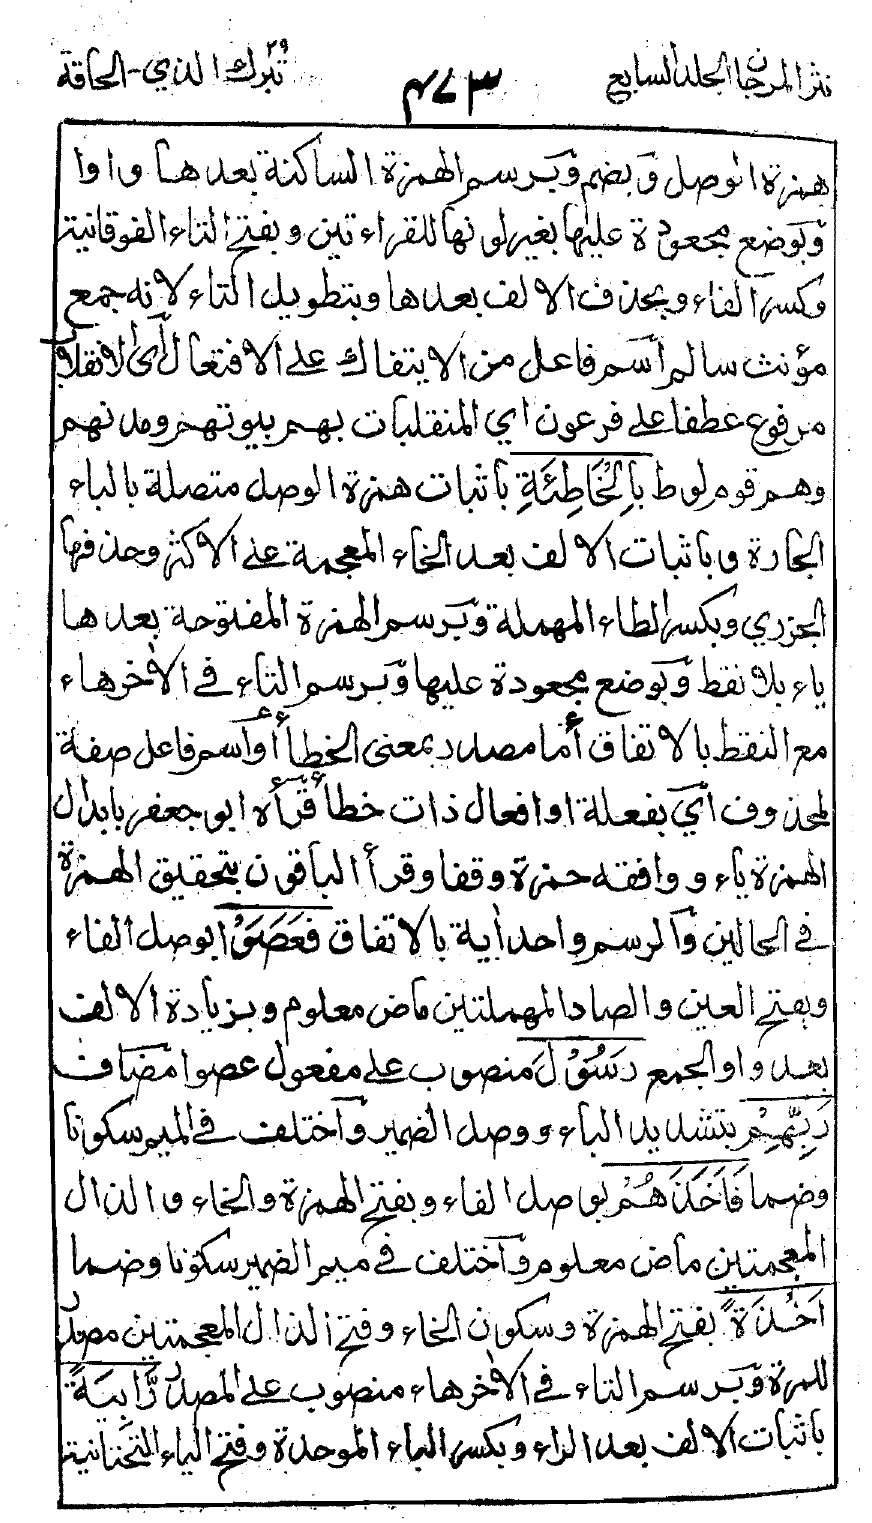 نثر المرجان الجلد السابع
٤٧٣
تبرك الذي ٢٩ - الحاقة
همزة الوصل وبضم وبرسم الهمزة الساكنة بعدها واوا
وبوضع مجعودة عليها بغير لونها للقراءتين وبفتح التاء الفوقانية
وكسر الفاء وبحذف الالف بعدها وبتطويل التاء لانه جمع
مؤنث سالم اسم فاعل من الايتفاك على الافتعال اى الانقلاب
مرفوع عطفا على فرعون اي المنقلبات بهم بيوتهم ومدنهم
وهم قوم لوط بِالْخَاطِئَةِ باثبات همزة الوصل متصلة بالباء
الجارة وباثبات الالف بعد الخاء المعجمة على الاكثر وحذفها
الجزري وبكسر الطاء المهملة وبرسم الهمزة المفتوحة بعدها
ياء بلا نقط وبوضع مجعودة عليها وبرسم التاء في الاخر هاء
مع النقط بالاتفاق أما مصدر بمعنى الخطأ أو اسم فاعل صفة
لمحذوف اي بفعلة او افعال ذات خطأ قرأه ابو جعفر بابدال
الهمزة ياء ووافقه حمزة وقفا وقرأ الباقون بتحقيق الهمزة
في الحالين والرسم واحد اية بالاتفاق فَعَصَوْا بوصل الفاء
وبفتح العين والصاد المهملتين ماض معلوم وبزيادة الالف
بعد واو الجمع رَسُوْلَ منصوب على مفعول عصوا مضاف
رَبِّهِمْ بتشديد الباء ووصل الضمير واختلف في الميم سكونا
وضما فَاَخَذَهُمْ بوصل الفاء وبفتح الهمزة والخاء والذال
المعجمتين ماض معلوم واختلف في ميم الضمير سكونا وضما
اَخْذَةً بفتح الهمزة وسكون الخاء وفتح الذال المعجمتين مصدر
للمرة وبرسم التاء في الاخر هاء منصوب على المصدر رَّابِيَةً
باثبات الالف بعد الراء وبكسر الباء الموحدة وفتح الياء التحتانية